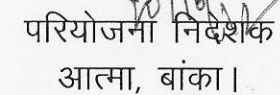 परियोजना निदेशक
आत्मा, बांका।